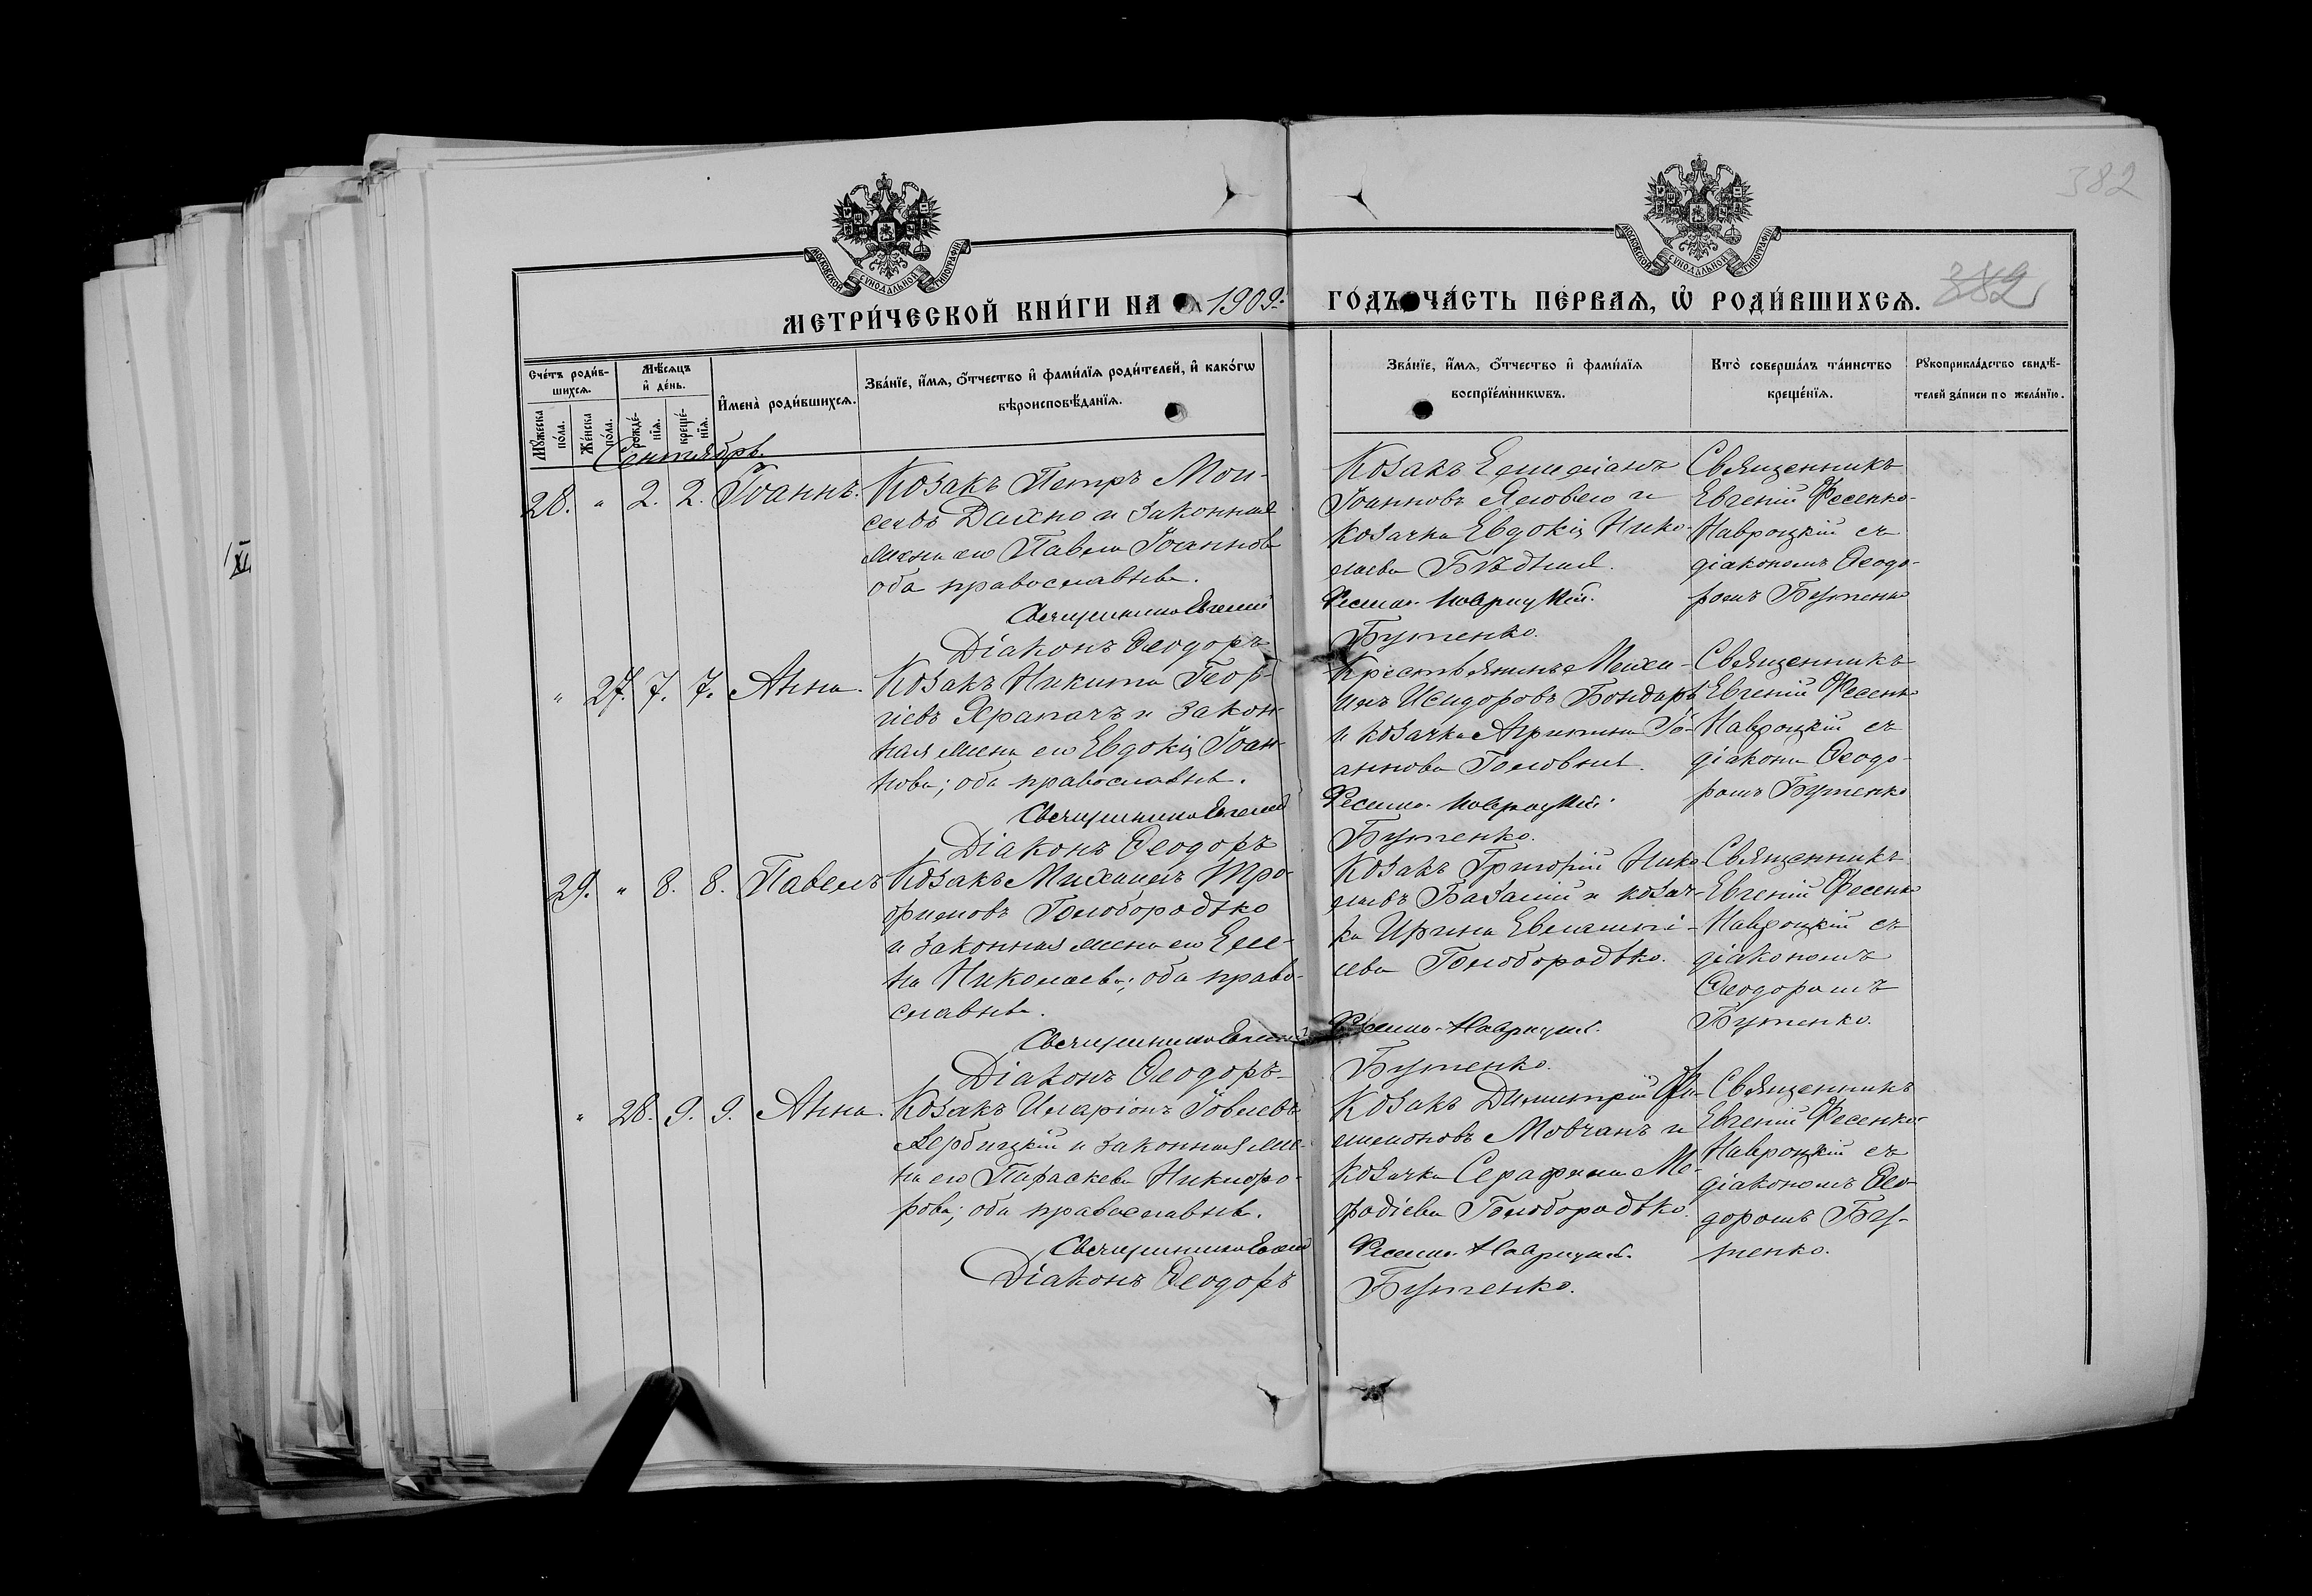 382
МОСКОВСКОЙ СѴНОДАЛЬНОЙ ТИПОГРАФІИ
МОСКОВСКОЙ СѴНОДАЛЬНОЙ ТИПОГРАФІИ
382
МЕТРИ́ЧЕСКОЙ КНИ́ГИ НА 1909.
ГО́ДЪ ЧА́СТЬ ПЕ́РВАЯ, Ѡ РОДИ́ВШИХСЯ.
Сче́тъ роди́в-
шихся.
Му́жеска по́ла.
Же́нска по́ла.
Мѣ́сяцъ
и де́нь.
рожде́-
нїя.
креще́-
нїя.
Имена̀ роди́вшихся.
Зва́нїе, и́мя, о́тчество и фами́лїя роди́телей, и како́гѡ
вѣроисповѣ́данїя.
Зва́нїе, и́мя, о́тчество и фами́лїя
воспрїе́мникѡвъ.
Кто̀ соверша́лъ та́инство
креще́нїя.
Рꙋкоприкла́дство свидѣ́-
телей за́писи по жела́нїю.
Сентябрь.
28. " 2. 2. Іоаннъ.
Козакъ Петръ Мои-
сеевъ Дахно и законная
жена его Павла Іоаннова
оба православные.
Священникъ Евгеній
Діаконъ Ѳеодоръ
Козакъ Емиліанъ
Іоанновъ и
козачка Евдокія Нико-
лаева Бѣдная.
Фесенко-Навроцкій.
Бутенко.
Священникъ
Евгеній Фесенко-
Навроцкій съ
діакономъ Ѳеодо-
ромъ Бутенко
" 27. 7. 7. Анна.
Козакъ Никита Геор-
гіевъ и закон-
ная жена его Евдокія Іоан-
нова; оба православные.
Священникъ Евгеній
Діаконъ Ѳеодоръ
Крестьянинъ Миха-
илъ Исидоровъ Бондарь
и козачка Агрипина Іо-
аннова Головня.
Фесенко-Навроцкій.
Бутенко.
Священникъ
Евгеній Фесенко
Навроцкій съ
діакономъ Ѳеодо-
ромъ Бутенко
29. " 8. 8. Павелъ
Козакъ Михаилъ Тро-
фимовъ Голобородько
и законная жена его Еле-
на Николаева; оба право-
славные.
Священникъ Евгеній
Діаконъ Ѳеодоръ
Козакъ Григорій Нико-
лаевъ Базалій и козач-
ка Ирина Евлампі-
ева Голобородько.
Фесенко-Навроцкій.
Бутенко.
Священникъ
Евгеній Фесенко
Навроцкій съ
діакономъ
Ѳеодоромъ
Бутенко.
" 28. 9. 9. Анна.
Козакъ Иларіонъ Іовлевъ
Вербицкій и законная же-
на его Параскева Никифо-
рова; оба православные.
Священникъ Евгеній
Діаконъ Ѳеодоръ
Козакъ Димитрій Фи-
лимоновъ Мовчанъ и
козачка Серафима Ме-
фодіева Голобородько.
Фесенко-Навроцкій.
Бутенко.
Священникъ
Евгеній Фесенко-
Навроцкій съ
діакономъ Ѳео-
доромъ Бу-
тенко.